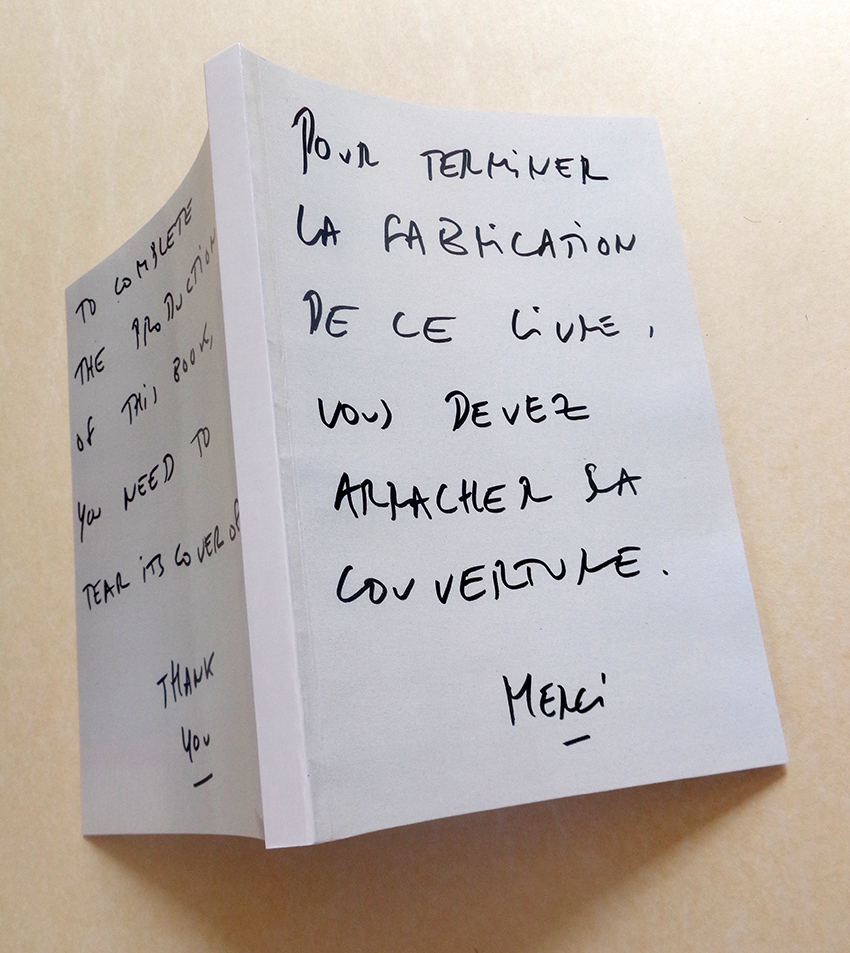 POUR TERMINER
LA FABRICATION
DE CE LIVRE,
VOUS DEVEZ
ARRACHER SA
COUVERTURE.
MERCI
TO COMPLETE
THE PRODUCTION
OF THIS BOOK,
YOU NEED TO
TEAR ITS COVER OF
THANK
YOU